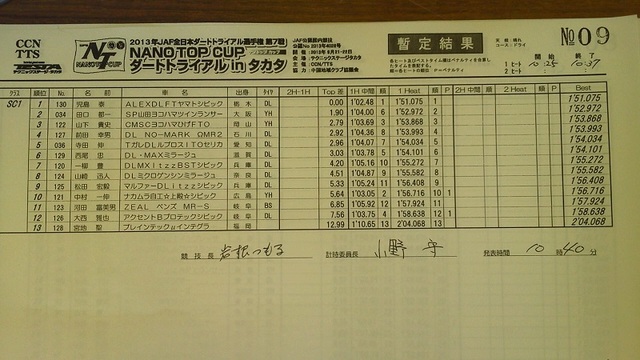 CCN
TTS
2013年JAF全日本ダートトライアル選手権 第7戦
NANOTOP CUP
ダートトライアル in タカタ
暫定結果
No 09
開始 終了
1ヒート 10:25 10:37
2ヒート
クラス 順位 No. 名前 車名 出身 タイヤ 2H-1H Top差 1H中間 順 1 Heat 順 P 2H中間 順 2 Heat 順 P Best
SC1 1 130 児島 泰 ALEXDLFTヤマトシビック 栃木 DL 0.00 1'02.48 1 1'51.075 1 1'51.075
2 034 田口 都一 SP山田ヨコハマツインランサー 大阪 YH 1.90 1'04.00 6 1'52.972 2 1'52.972
3 122 山下 貴史 CMSCヨコハマひげFTO 岡山 YH 2.79 1'03.69 3 1'53.868 3 1'53.868
4 127 前田 幸男 DL NO-MARK OMR2 石川 DL 2.92 1'04.36 8 1'53.993 4 1'53.993
5 036 寺田 伸 TガレDLルブロスITOセリカ 愛知 DL 2.96 1'04.07 7 1'54.034 5 1'54.034
6 129 西尾 忠 DL・MAXミラージュ 滋賀 DL 3.03 1'03.78 5 1'54.101 6 1'54.101
7 120 一柳 豊 DLMXitzzBSTシビック 兵庫 DL 4.20 1'05.16 10 1'55.272 7 1'55.272
8 124 山崎 迅人 DLミクロゲンシンミラージュ 奈良 DL 4.51 1'04.87 9 1'55.582 8 1'55.582
9 125 松田 宏毅 マルファーDLitzzシビック 兵庫 DL 5.33 1'05.24 11 1'56.408 9 1'56.408
10 121 中村 一伸 ナカムラ自工☆上殿☆シビック 広島 YH 5.64 1'03.05 2 1'56.716 10 1 1'56.716
11 123 河田 富美男 ZEAL ベンズ MR-S 岐阜 BS 6.85 1'05.92 12 1'57.924 11 1'57.924
12 126 大西 雅也 アクセントBプロテックシビック 岐阜 DL 7.56 1'03.75 4 1'58.638 12 1 1'58.638
13 128 宮地 聖 ブレインテックμインテグラ 福岡 12.99 1'10.65 13 2'04.068 13 2'04.068
競技長 岩根つもる 計時委員長 小野 守 発表時間 10 時 40 分